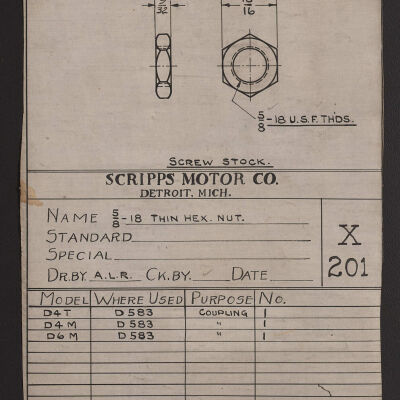 32
16
5/8-18 U.S.F. THDS.
SCREW STOCK.
SCRIPPS MOTOR CO.
DETROIT, MICH.
NAME 5/8-18 THIN HEX. NUT.
STANDARD
SPECIAL
DR.BY A.L.R. CK.BY. DATE
X
201
MODEL WHERE USED PURPOSE NO.
D4T D583 COUPLING 1
D4M D583 " 1
D6M D583 " 1